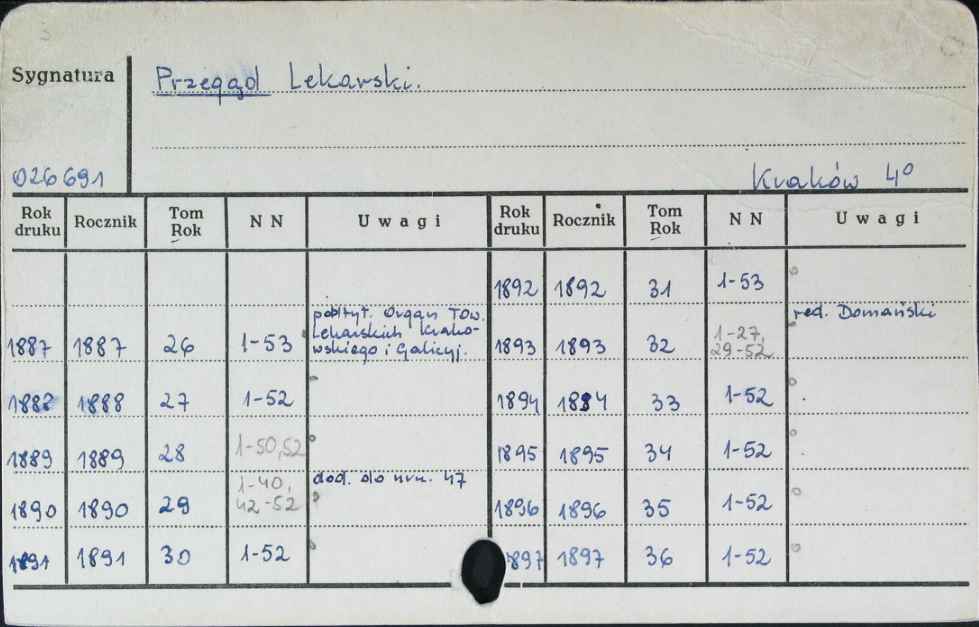 Sygnatura
Przegąd Lekarski.
026691
Kraków 4°
Rok druku Rocznik Tom Rok NN Uwagi Rok druku Rocznik Tom Rok NN Uwagi
1892 1892 31 1-53
1887 1887 26 1-53 podtyt. Organ Tow. Lekarskich krako-wskiego i Galicyj. 1893 1893 32 1-27, 29-52 red. Domański
1888 1888 27 1-52 1894 1894 33 1-52
1889 1889 28 1-50,52 1895 1895 34 1-52
1890 1890 29 1-40, 42-52 dod. do nru. 47 1896 1896 35 1-52
1891 1891 30 1-52 1897 1897 36 1-52